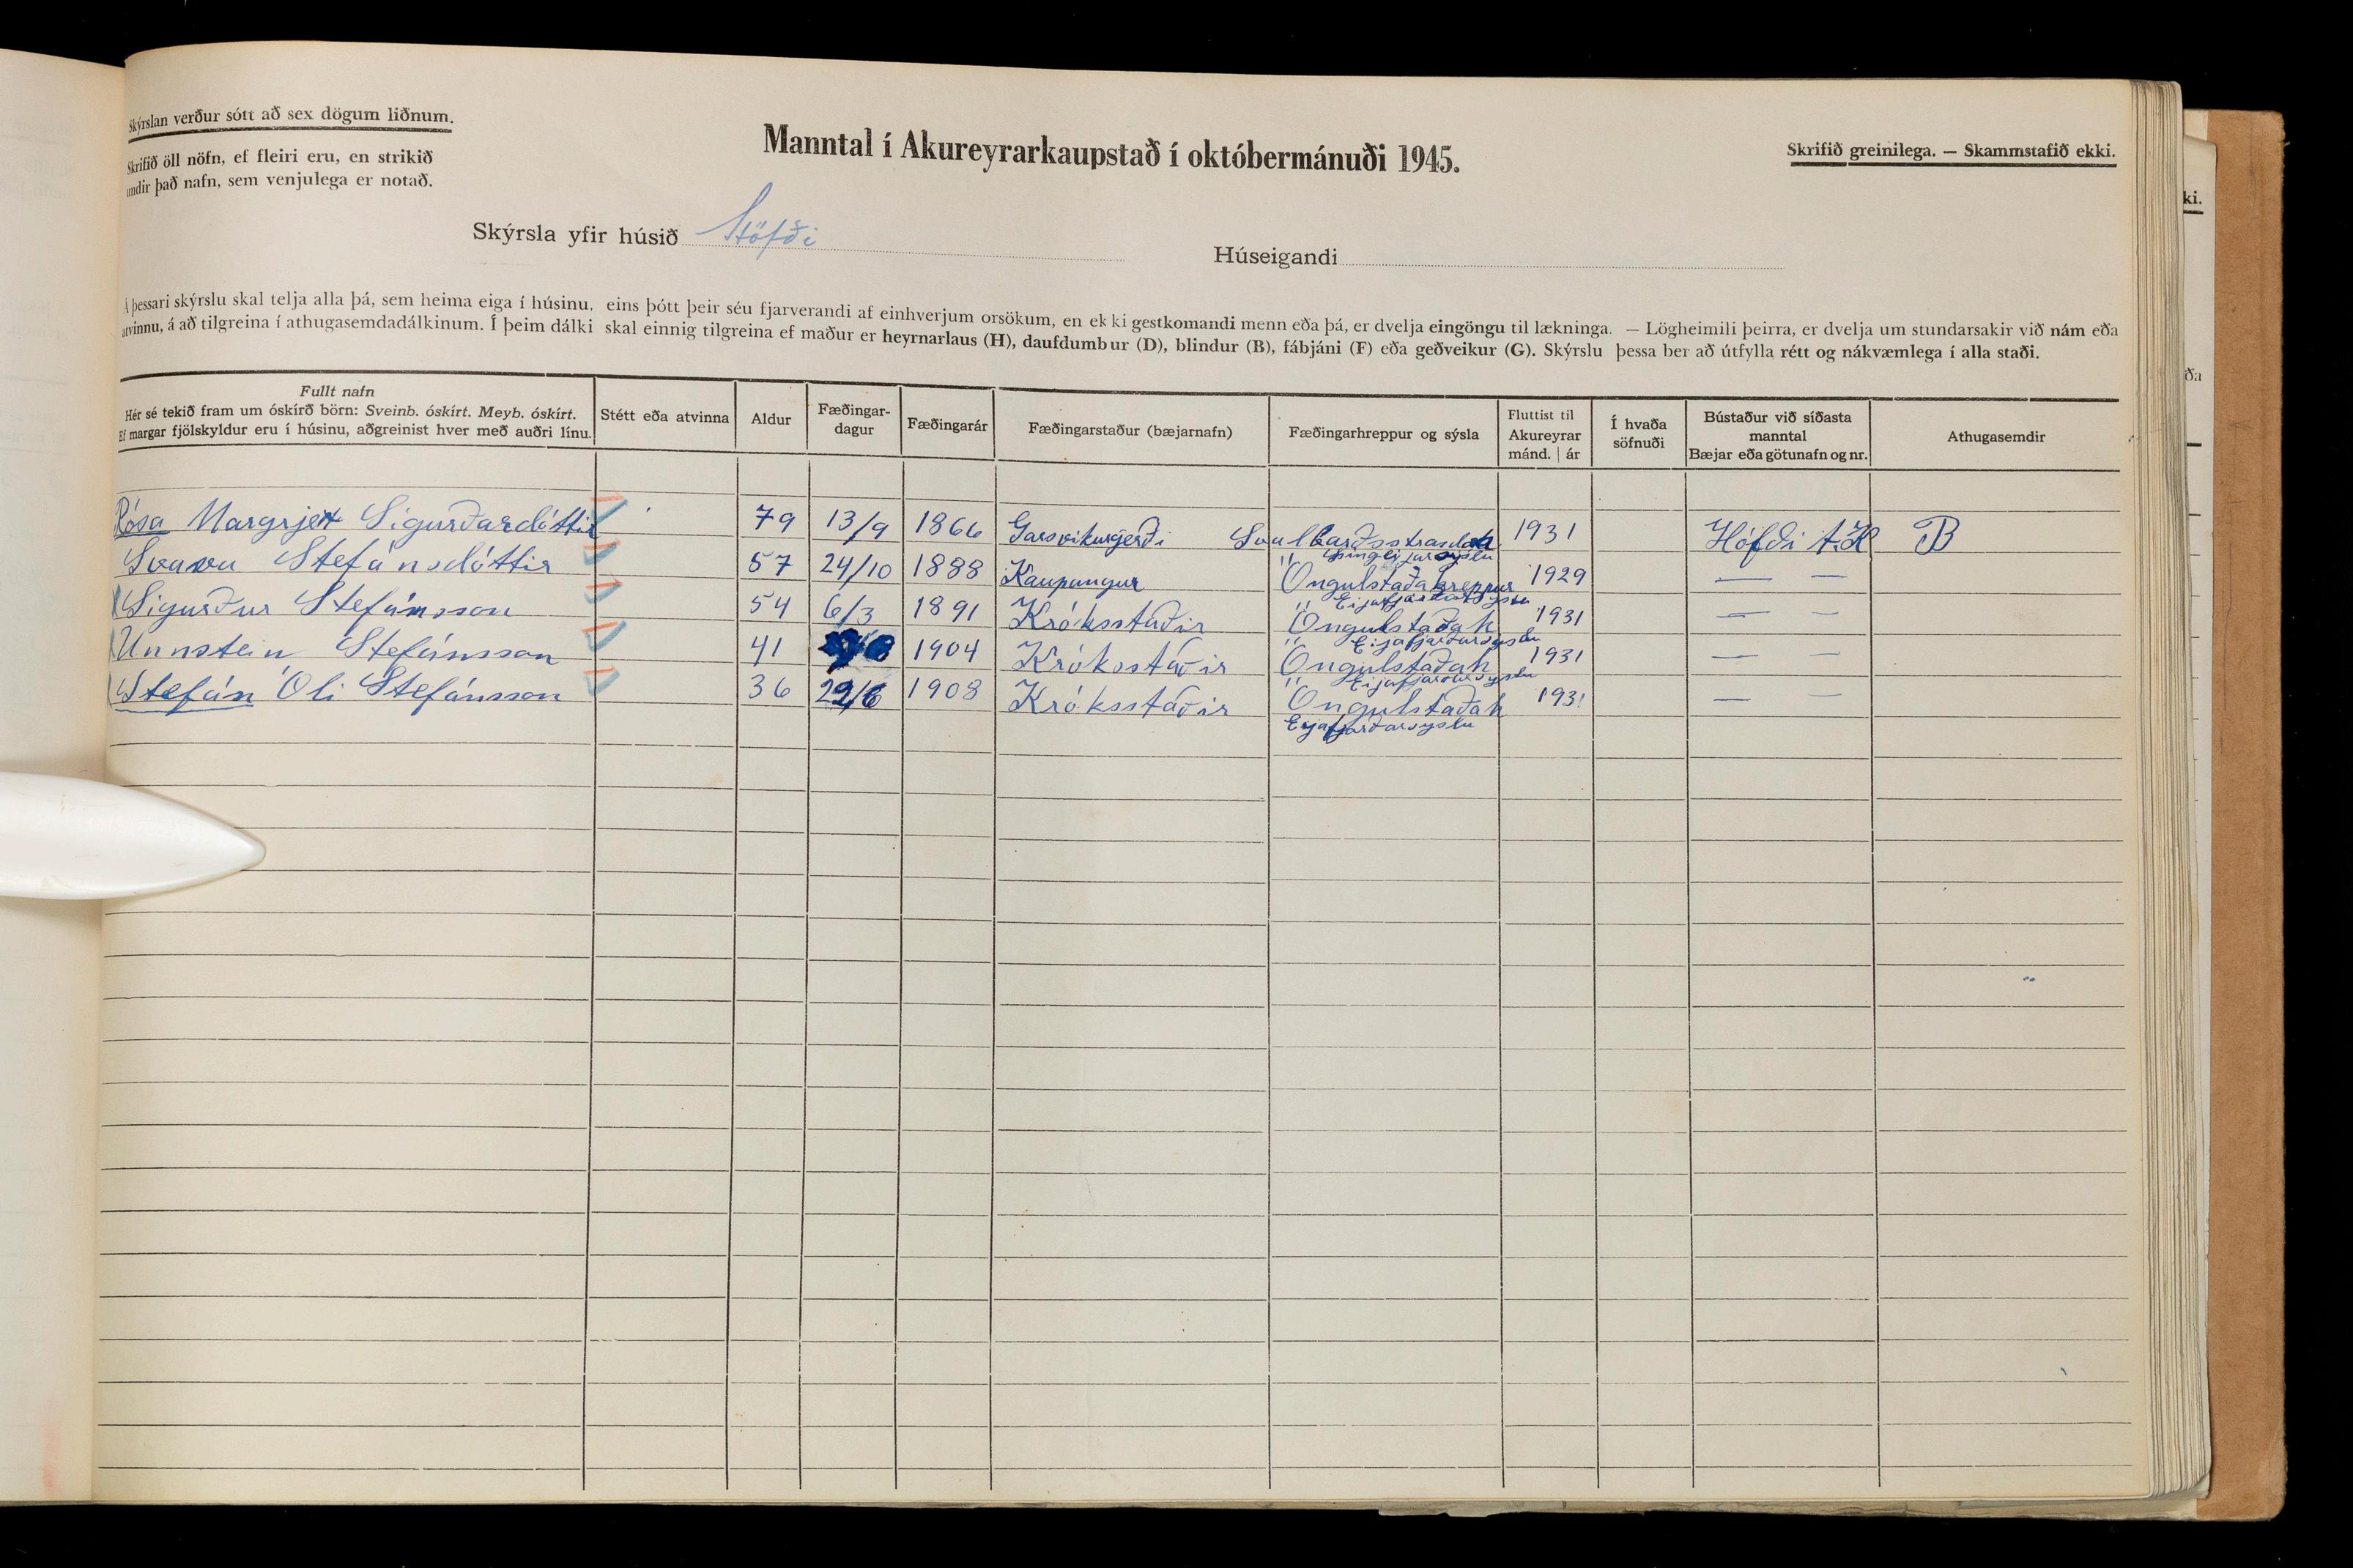 Skýrslan verður sótt að sex dögum liðnum.
Skrifið öll nöfn, ef fleiri eru, en strikið
undir það nafn, sem venjulega er notað.
Manntal í Akureyrarkaupstað í októbermánuði 1945.
Skrifið greinilega. — Skammstafið ekki.
Skýrsla yfir húsið Höfði
Húseigandi
Á þessari skýrslu skal telja alla þá, sem heima eiga í húsinu, eins þótt þeir séu fjarverandi af einhverjum orsökum, en ekki gestkomandi menn eða þá, er dvelja eingöngu til lækninga. — Lögheimili þeirra, er dvelja um stundarsakir við nám eða
atvinnu, á að tilgreina í athugasemdadálkinum. Í þeim dálki skal einnig tilgreina ef maður er heyrnarlaus (H), daufdumbur (D), blindur (B), fábjáni (F) eða geðveikur (G). Skýrslu þessa ber að útfylla rétt og nákvæmlega í alla staði.
Fullt nafn
Hér sé tekið fram um óskírð börn: Sveinb. óskírt. Meyb. óskírt.
Ef margar fjölskyldur eru í húsinu, aðgreinist hver með auðri línu.
Stétt eða atvinna
Aldur
Fæðingar-
dagur
Fæðingarár
Fæðingarstaður (bæjarnafn)
Fæðingarhreppur og sýsla
Fluttist til
Akureyrar
mánd. | ár
Í hvaða
söfnuði
Bústaður við síðasta
manntal
Bæjar eða götunafn og nr.
Athugasemdir
Rósa Margrjet Sigurðardóttir 79 13/9 1866 Garsvikurgerði Svalbarðsstrandah 1931 Höfði A.H B
Þingeijarsýslu
Svava Stefánsdóttir 57 24/10 1888 Kaupangur " Öngulstaðahreppur 1929 — —
Eijafjarðarsýslu
Sigurður Stefánsson 54 6/3 1891 Króksstaðir " Öngulstaðah 1931 — —
Eijafjarðarsýslu
Unnstein Stefánsson 41 1904 Króksstaðir " Öngulstaðah 1931 — —
Eijafjarðarsýslu
Stefán Óli Stefánsson 36 29/6 1908 Króksstaðir " Öngulstaðah 1931 — —
Eyjafjarðarsýslu
ki.
ða